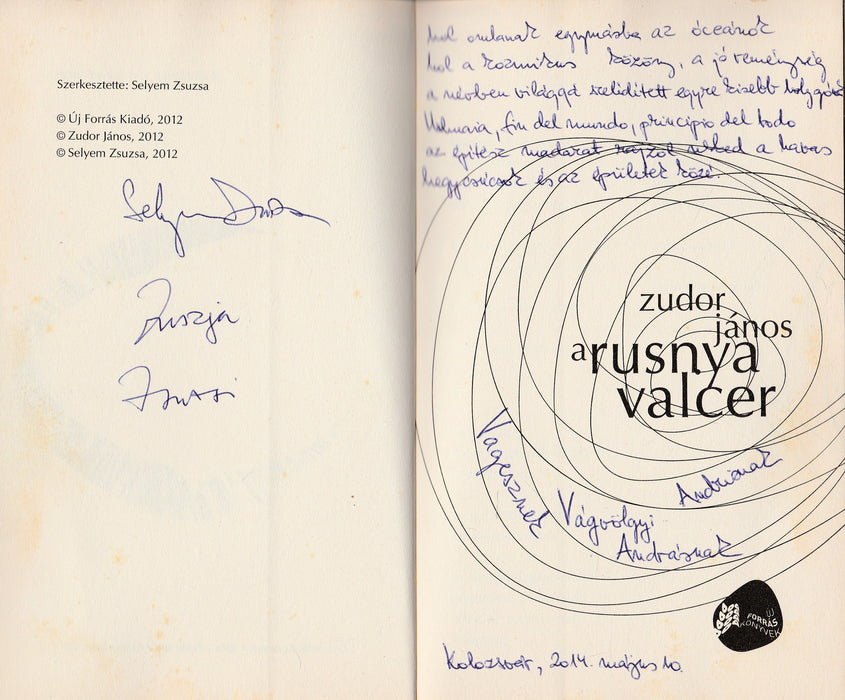 Szerkesztette: Selyem Zsuzsa
© Új Forrás Kiadó, 2012
© Zudor János, 2012
© Selyem Zsuzsa, 2012
Selyem Zsuzsa
Zuszja
Zsuzsi
hol omlanak egymásba az óceánok
hol a kozmikus közöny, a jó reménység
a névben világgá szelidített egyre kisebb
fin del mundo, principio del todo
az építész madarat rajzol neked a havas
hegycsúcsok és az épületek közé.
zudor
jános
a rusnya
valcer
Vagesznek
Vágvölgyi
Andrásnak
Andrisnak
ÚJ
FORRÁS
KÖNYVEK
Kolozsvár, 2014. május 10.